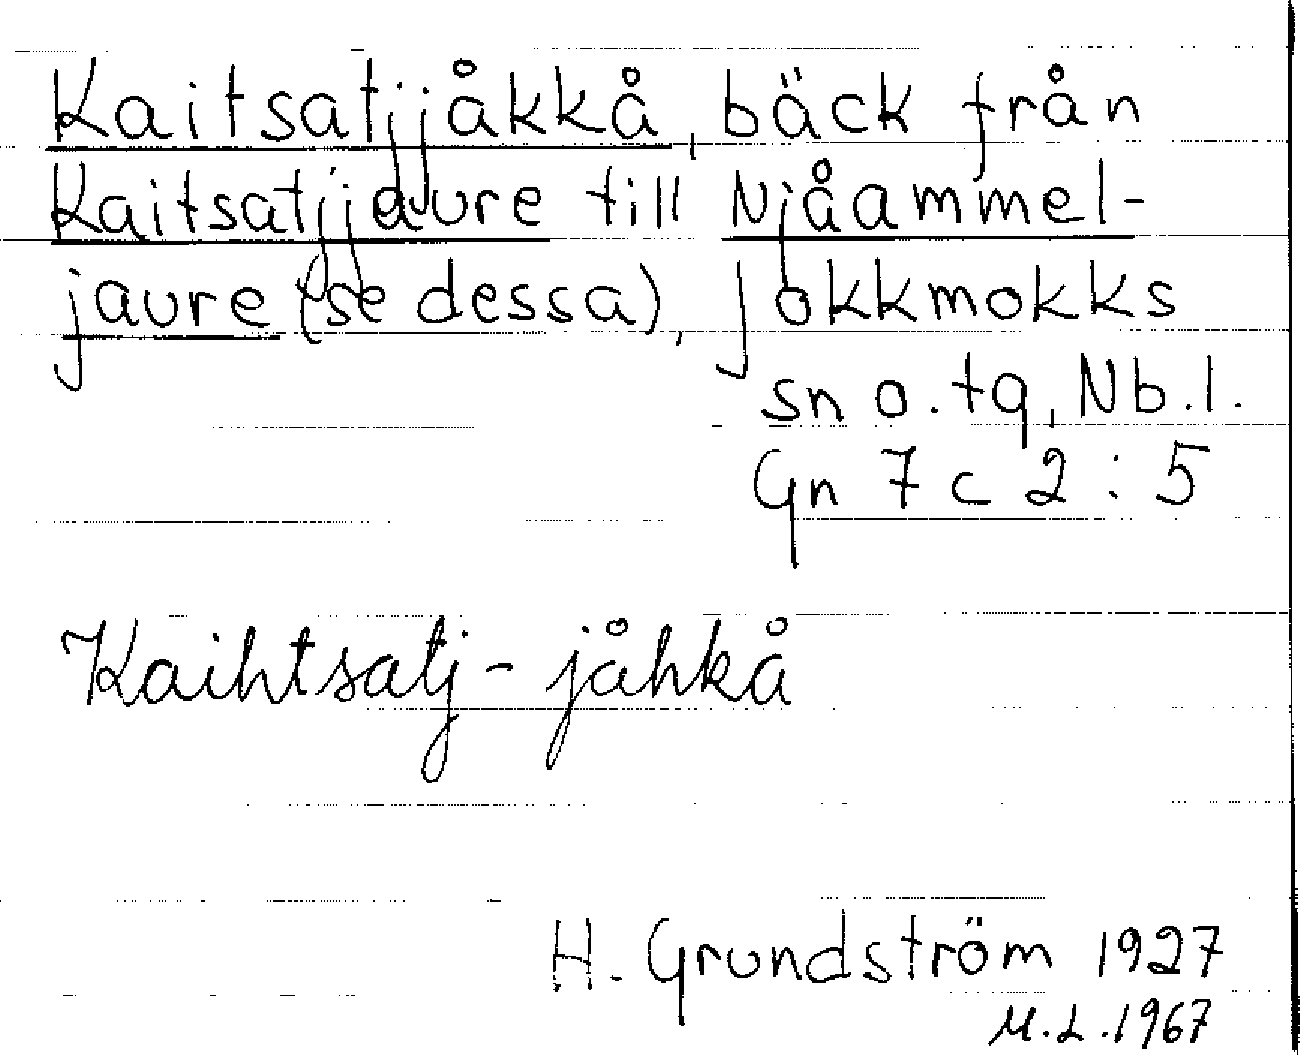 Kaitsatjjåkkå, bäck från
Kaitsatjjaure till Njåammel-
jaure (se dessa), Jokkmokks
sn o. tg, Nb.l.
Gn 7 c 2 : 5
Kaihtsatj - jåhkå
H. Grundström 1927
M.L. 1967